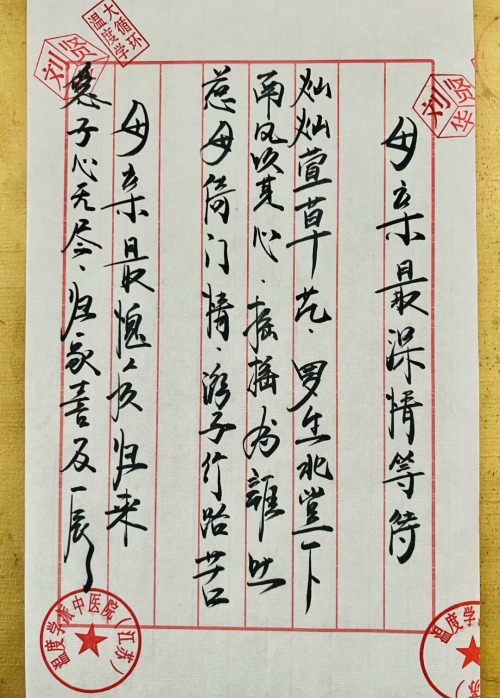 母亲最深情等待
灿灿萱草花、罗生北堂下
南风吹其心、摇摇为谁吐
慈母倚门情、游子行路苦
母亲最孩归来
爱子心无尽、归家喜及辰
大循环
温度学
刘贤
刘贤华
温度学派中医院（江苏）
温度学